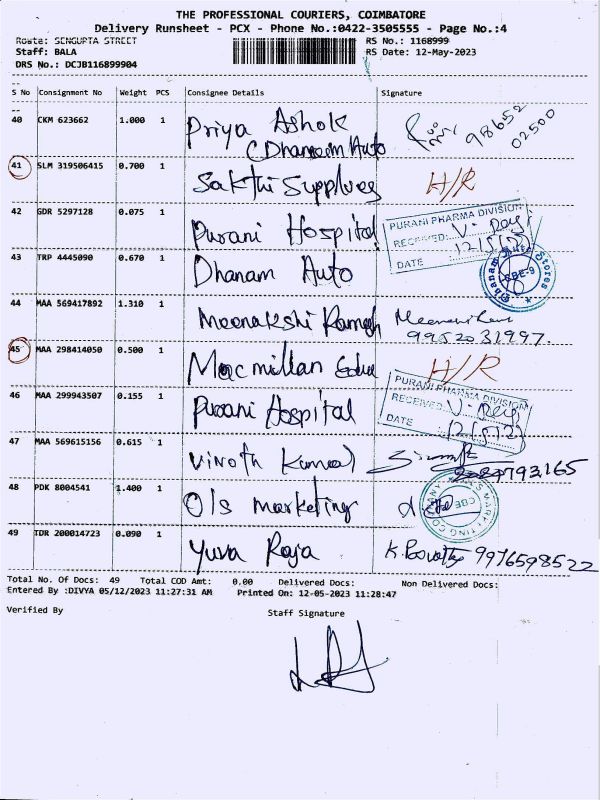 THE PROFESSIONAL COURIERS, COIMBATORE
Delivery Runsheet - PCX - Phone No.:0422-3505555 - Page No.:4
Route: SENGUPTA STREET RS No.: 1168999
Staff: BALA RS Date: 12-May-2023
DRS No.: DCJB116899904
S No Consignment No Weight PCS Consignee Details Signature
40 CKM 623662 1.000 1 Priya Ashok 98652
(Dhanam Auto 02500
41 SLM 319506415 0.700 1 Sakthi Supplies H/R
42 GDR 5297128 0.075 1 Purani Hospital PURANI PHARMA DIVISION
RECEIVED:
DATE 12/5/23
43 TRP 4445090 0.670 1 Dhanam Auto Dhanam Auto Stores CBE-9
44 MAA 569417892 1.310 1 Meenakshi Ramesh
9952031997.
45 MAA 298414050 0.500 1 Macmillan Edu H/R
46 MAA 299943507 0.155 1 Purani Hospital PURANI PHARMA DIVISION
RECEIVED:
DATE 12/5/23
47 MAA 569615156 0.615 1 Vinoth Kumar
48 PDK 8004541 1.400 1 Ols marketing MARKETING COMPANY CBE
49 TDR 200014723 0.090 1 Yuva Raja 9976598522
Total No. Of Docs: 49 Total COD Amt: 0.00 Delivered Docs: Non Delivered Docs:
Entered By :DIVYA 05/12/2023 11:27:31 AM Printed On: 12-05-2023 11:28:47
Verified By Staff Signature